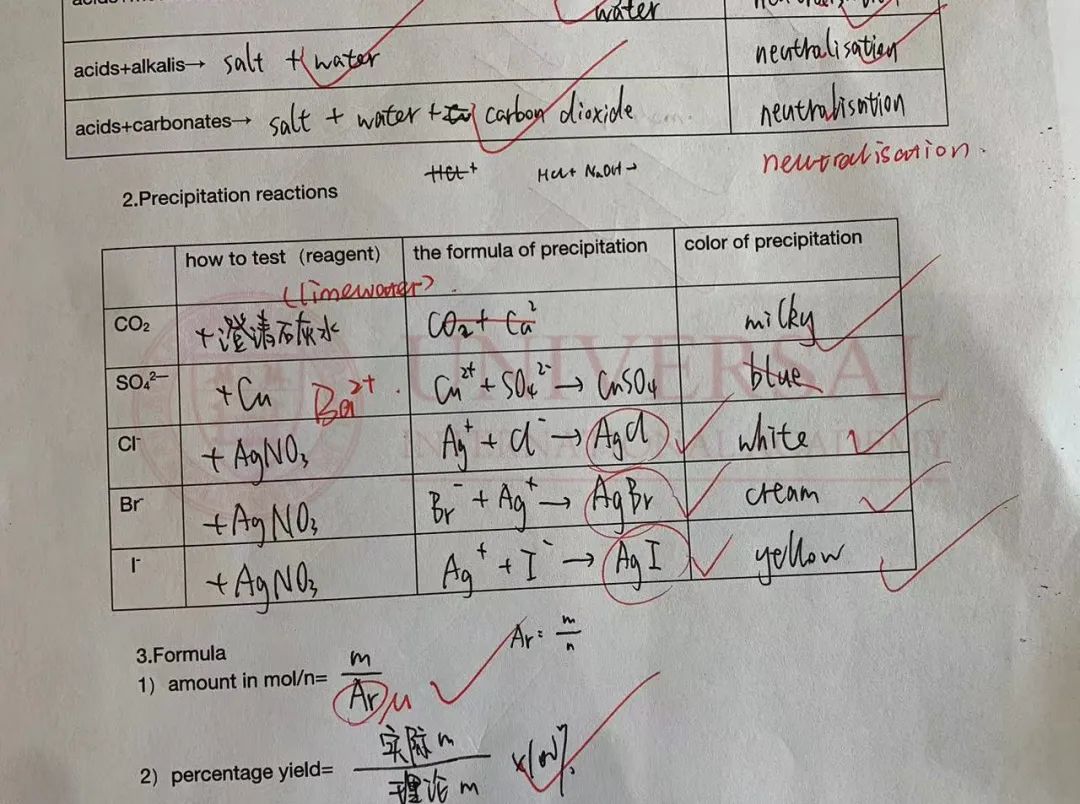 water
acids+alkalis→ salt + water neutralisation
acids+carbonates→ salt + water + carbon dioxide neutralisation
neutralisation.
HCl+ HCl+ NaOH→
2.Precipitation reactions
how to test (reagent) the formula of precipitation color of precipitation
(limewater).
CO₂ +澄清石灰水 CO₂ + Ca² milky
SO₄²⁻ +Cu Ba²⁺ . Cu²⁺ + SO₄²⁻ → CuSO₄ blue
Cl⁻ + AgNO₃ Ag⁺ + Cl⁻ → AgCl white
Br⁻ + AgNO₃ Br⁻ + Ag⁺ → AgBr cream
I⁻ + AgNO₃ Ag⁺ + I⁻ → AgI yellow
UNIVERSAL
INTERNATIONAL ACADEMY
3.Formula
Ar= m/n
1) amount in mol/n= m/Ar M
2) percentage yield= 实际m/理论m